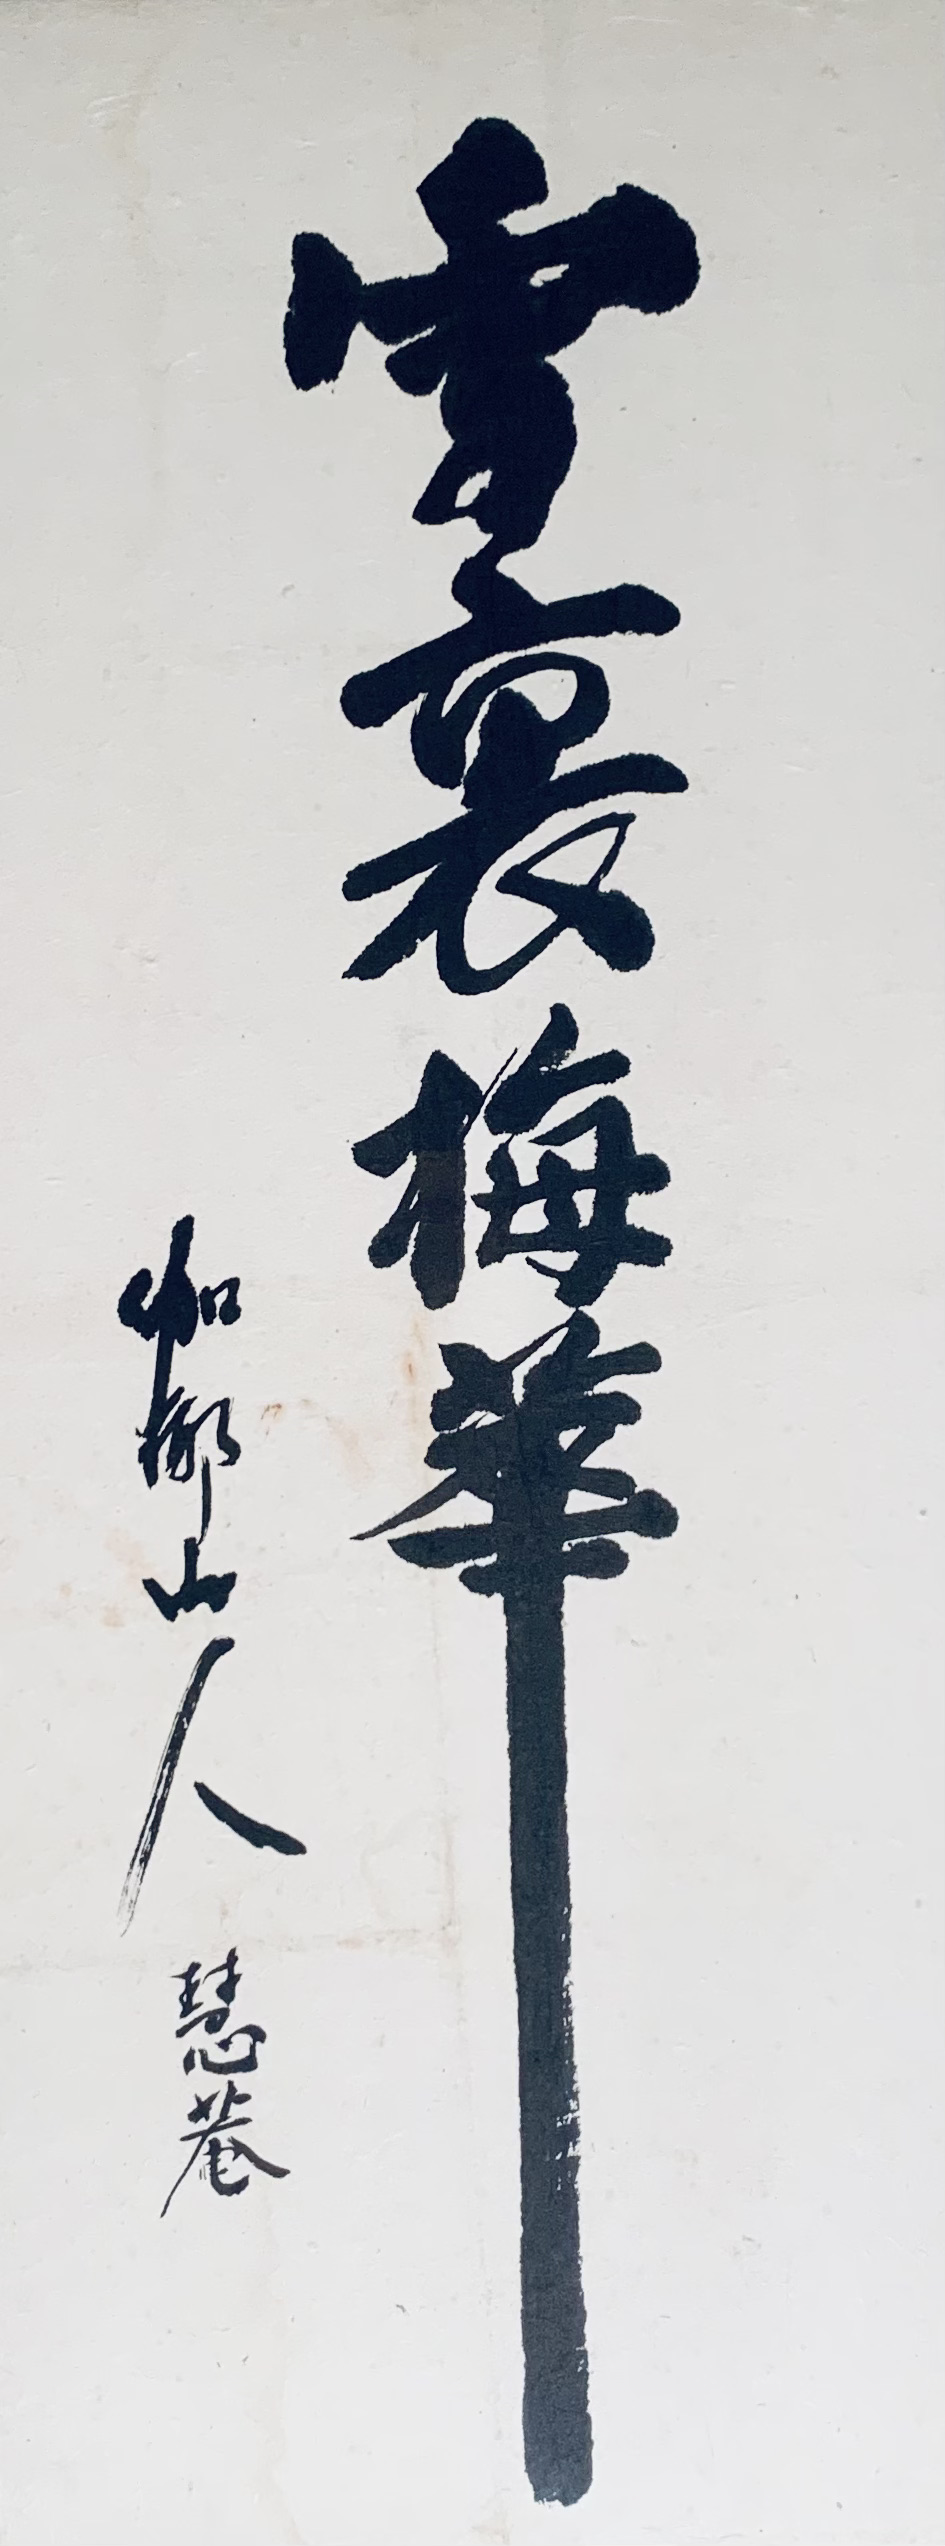 雪裏梅華
伽倻山人 慧菴